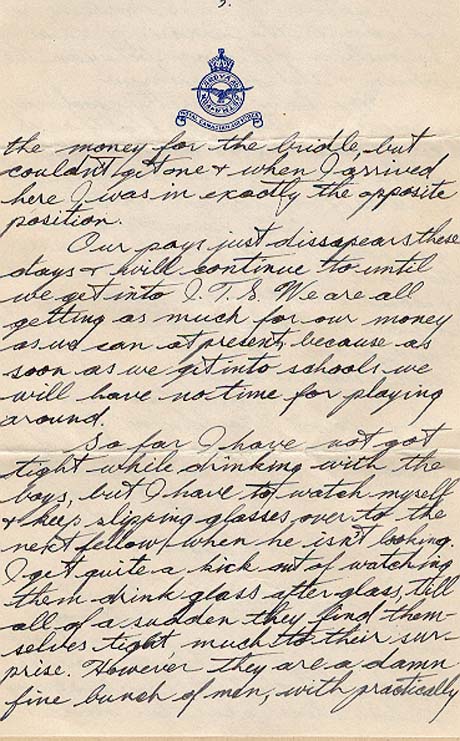 3.
the money for the bridle, but
couldn't get one & when I arrived
here I was in exactly the opposite
position.
Our pays just dissapears these
days & will continue to until
we get into I.T.S. We are all
getting as much for our money
as we can at present, because as
soon as we get into schools we
will have no time for playing
around.
So far I have not got
tight while drinking with the
boys, but I have to watch myself
& keep slipping glasses over to the
next fellow when he isn't looking.
I get quite a kick out of watching
them drink glass after glass, till
all of a sudden they find them-
selves tight, much to their sur-
prise. However they are a damn
fine bunch of men, with practically